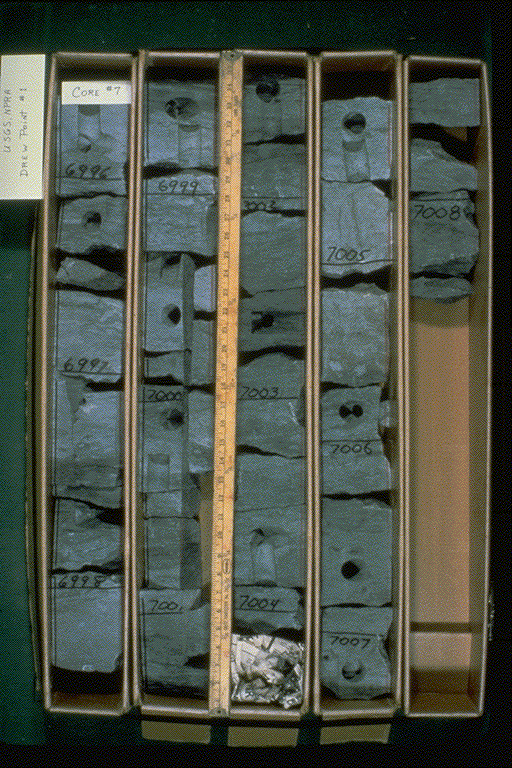 USGS NPRA
DREW POINT #1
CORE #7
6996
6997
6998
6999
7000
700
7002
7003
7004
7005
7006
7007
7008